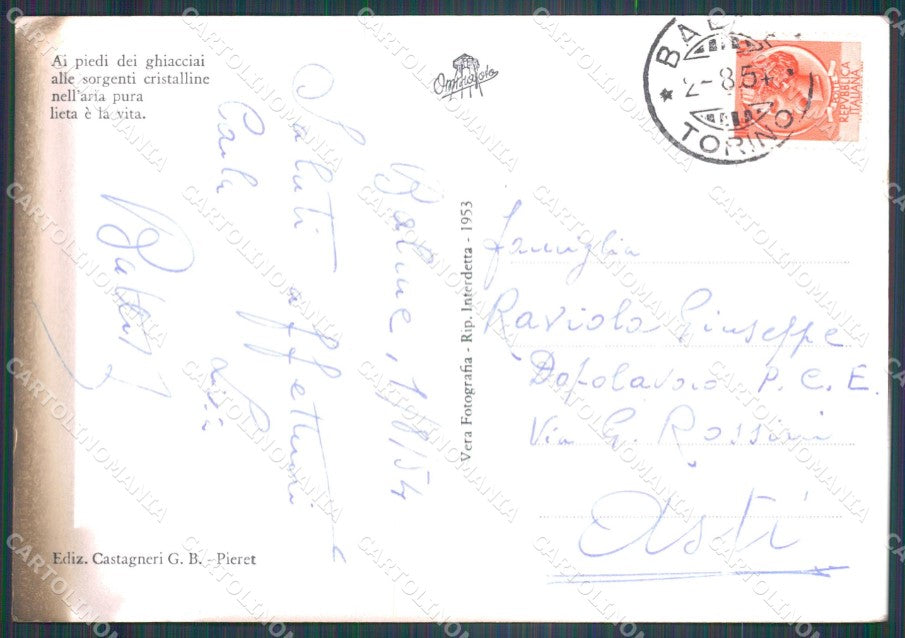 Ai piedi dei ghiacciai
alle sorgenti cristalline
nell'aria pura
lieta è la vita.
Omniafoto
TORINO
2-8.54
POSTE
REPVBBLICA
ITALIANA
Balme, 1/8/54
Saluti affettuosi
Vera Fotografia - Rip. Interdetta - 1953
famiglia
Raviola Giuseppe
Dopolavoro P.C.E.
Via G. Rossini
Asti
Ediz. Castagneri G. B. - Pieret
CARTOLINOMANIA